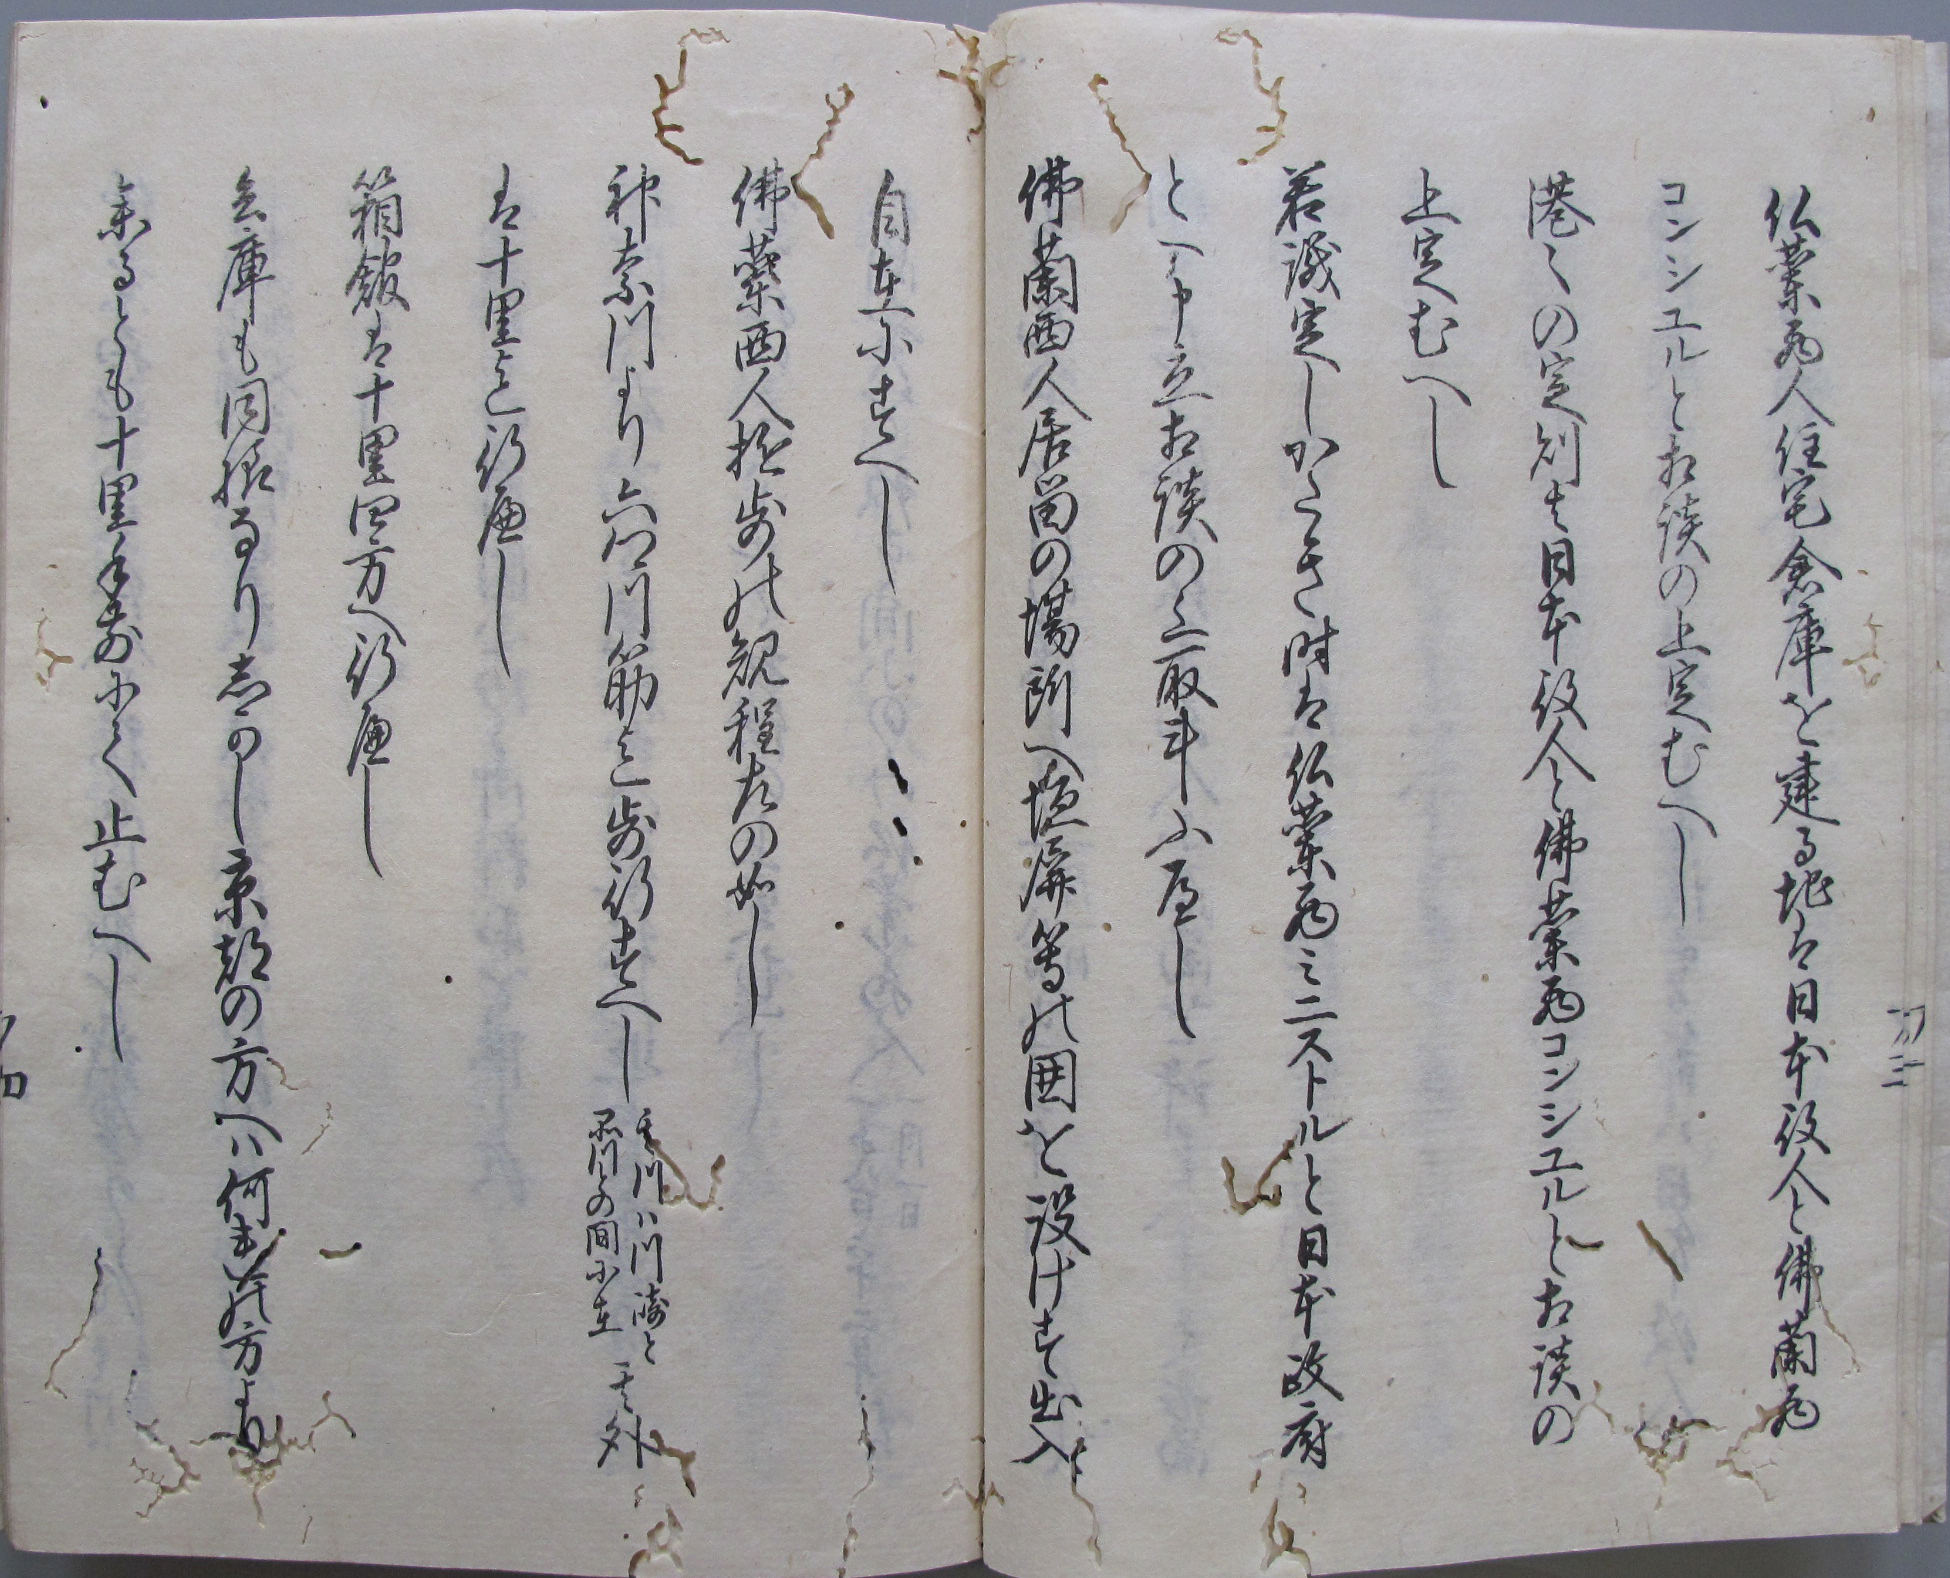 仏蘭西人住宅倉庫を建る地は日本役人と佛蘭西
コンシユルと相談の上定むへし
港々の定則も日本役人と佛蘭西コンシユルと相談の
上定むへし
若議定しかたき時は仏蘭西ミニストルと日本政府
とへ申立相談の上取斗ふ辺し
佛蘭西人居留の場所へ垣屏等の囲を設けす出入
自在にすへし
佛蘭西人遊歩の規程左の如し
神奈川より六郷川筋迄歩行すへし
其川ハ川崎と
品川との間に在
其外
は十里迄行辺し
箱館は十里四方へ行辺し
兵庫も同様なりしかし京都の方へハ何れの方より
来るとも十里手前にて止むへし